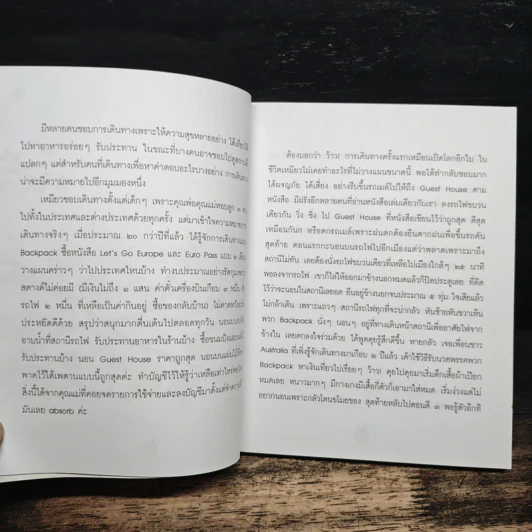 มีหลายคนชอบการเดินทางเพราะให้ความสุขหลายอย่าง ได้เที่ยว ได้
ไปหาอาหารอร่อยๆ รับประทาน ในขณะที่บางคนอาจชอบไปดูสถานที่
แปลกๆ แต่สำหรับคนที่เดินทางเพื่อหาคำตอบอะไรบางอย่าง การเดินทาง
น่าจะมีความหมายไปอีกมุมมองหนึ่ง
เหมียวชอบเดินทางตั้งแต่เด็กๆ เพราะคุณพ่อคุณแม่หอบลูก ๓ คน
ไปทั้งในประเทศและต่างประเทศด้วยทุกครั้ง แต่มาเข้าใจความหมายการ
เดินทางจริงๆ เมื่อประมาณ ๒๐ กว่าปีที่แล้ว ได้รู้จักการเดินทางแบบ
Backpack ซื้อหนังสือ Let's Go Europe และ Euro Pass แบบ ๒ เดือน
วางแผนคร่าวๆ ว่าไปประเทศไหนบ้าง ทำงบประมาณอย่างรัดกุมเพราะ
สตางค์ไม่ค่อยมี (มีเงินไม่ถึง ๑ แสน ค่าตั๋วเครื่องบินเกือบ ๓ หมื่น ค่า
รถไฟ ๒ หมื่น ที่เหลือเป็นค่ากินอยู่ ซื้อของกลับบ้าน)
ประหยัดดีด้วย สรุปว่าสนุกมากตื่นเต้นไปตลอดทุกวัน นอนบน
อาบน้ำที่สถานีรถไฟ รับประทานอาหารในร้านบ้าง ซื้อขนมปัง
รับประทานบ้าง นอน Guest House ราคาถูกสุด นอนบน
พาดไว้ใต้เพดานแบบนี้ถูกสุดค่ะ ทำบัญชีไว้ให้รู้ว่าเหลือเท่าไหร่
สิ่งนี้ได้จากคุณแม่ที่คอยจดรายการใช้จ่ายและลงบัญชีมาตั้งแต่จำความได้
มันเลย absorb ค่ะ
ต้องบอกว่า ว้าว! การเดินทางครั้งแรกเหมือนเปิดโลกอีกใบ ใน
ชีวิตเหมียวไม่เคยทำอะไรที่ไม่วางแผนขนาดนี้ พอได้ทำกลับชอบมาก
ได้ผจญภัย ได้เสี่ยง อย่างรีบขึ้นรถเมล์ไปให้ถึง Guest House ตาม
หนังสือ มีฝรั่งอีกหลายคนที่อ่านหนังสือเล่มเดียวกับเรา ลงรถไฟขบวน
เดียวกัน วิ่ง ซิ่ง ไป Guest House ที่หนังสือเขียนไว้ว่าถูกสุด ดีสุด
เหมือนกัน!! หรือตกรถเมล์เพราะฝนตกต้องยืนตากฝนเพื่อขึ้นรถคัน
สุดท้าย ตอนแรกกะนอนบนรถไฟไปอีกเมืองแต่ว่าพลาดเพราะมาถึง
สถานีไม่ทัน เลยต้องนั่งรถไฟขบวนเดียวที่เหลือไปเมืองใกล้ๆ ๒๕ นาที
พอลงจากรถไฟ เขาก็ไล่ให้ออกมาข้างนอกหมดแล้วก็ปิดประตูเลย ที่คิด
ไว้ว่าจะนอนในสถานีเลยอด ยืนอยู่ข้างนอกจนประมาณ ๕ ทุ่ม ใจเสียแล้ว
ไม่กล้าเดิน เพราะแถวๆ สถานีรถไฟทุกที่จะน่ากลัว หันซ้ายหันขวาเห็น
พวก Backpack นั่งๆ นอนๆ อยู่ที่ทางเดินหน้าสถานีเพื่ออาศัยไฟจาก
ข้างใน เลยตกลงใจร่วมด้วย ได้พูดคุยรู้สึกดีขึ้น หายกลัว เจอเพื่อนชาว
Australia ที่เพิ่งรู้จักเดินทางมาเกือบ ๒ ปีแล้ว เค้าใช้วิธีรับนวดพรรคพวก
Backpack หาเงินเที่ยวไปเรื่อยๆ ว้าว! คุยไปคุยมาเริ่มดึกเสื้อผ้าเปียก
หมดเลย หนาวมากๆ มีกางเกงมีเสื้อกี่ตัวก็เอามาใส่หมด เริ่มง่วงแต่ไม่
อยากนอนเพราะกลัวโดนขโมยของ สุดท้ายหลับไปตอนตี ๓ พอรู้ตัวอีกที